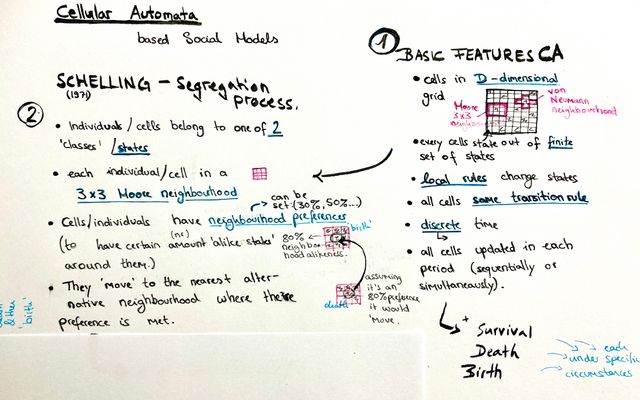 Cellular Automata
based Social Models
① BASIC FEATURES CA
• cells in D-dimensional
grid
Moore
3x3
von
Neumann
neighbourhood
• every cells state out of finite
set of states
• local rules change states
• all cells same transition rule
• discrete time
• all cells updated in each
period (sequentially or
simultaneously).
+
Survival
Death
Birth
each
under specific
circumstances
② SCHELLING - Segregation
(1971)
process.
• Individuals/cells belong to one of 2
'classes'/states
• each individual/cell in a
3x3 Moore neighbourhood
can be
set (30%, 50%...)
• Cells/individuals have neighbourhood preferences
(to have certain amount 'alike states'
around them.)
'birth'
80%
neighbor
hood alikeness.
• They 'move' to the nearest alter-
native neighbourhood where the
preference is met.
death
assuming
it's an
80% preference
it would
'move.
& then
'birth'